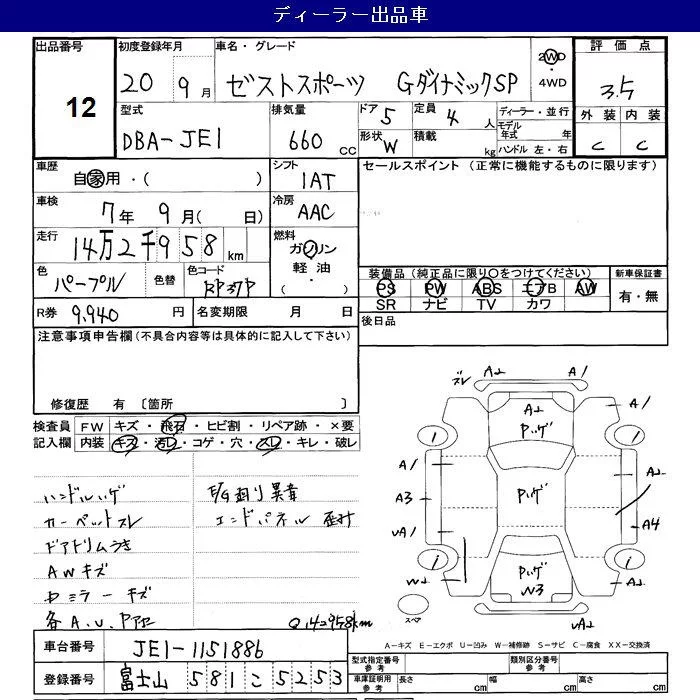 ディーラー出品車
出品番号 12
初度登録年月 20 9月
車名・グレード ゼストスポーツ GダイナミックSP
2WD・4WD
評価点 3.5
型式 DBA-JE1
排気量 660 cc
ドア 5 定員 4人
形状 W 積載 kg
ディーラー・並行
モデル年式 年
ハンドル 左・右
外装 C 内装 C
車歴 自家用・( )
シフト 1AT
セールスポイント (正常に機能するものに限ります)
車検 7年 9月( 日)
冷房 AAC
走行 14万2千958km
燃料 ガソリン 軽油・( )
色 パープル 色替 色コード RP37P
装備品(純正品に限り○をつけてください)
新車保証書 有・無
PS PW ABS エアB AW
SR ナビ TV カワ
R券 9,940円 名変期限 月 日
後日品
注意事項申告欄(不具合内容等は具体的に記入して下さい)
修復歴 有 〔箇所 〕
検査員 FW キズ・飛石・ヒビ割・リペア跡・×要
記入欄 内装 キズ・汚レ・コゲ・穴・スレ・キレ・破レ
ハンドルハゲ
カーペットスレ エンドパネル
ドアトリムうき
AWキズ
ミラーキズ
各A.U.
Q142958km
ズレ A2 A1
A2 A1
Pハゲ
A1 A2
A3 Pハゲ A4
UA1
W2 Pハゲ A2
W3
スペア UA2
A-キズ E-エクボ U-凹み W-補修跡 S-サビ C-腐食 XX-交換済
車台番号 JE1-1151886
登録番号 富士山 581 こ 5253
型式指定番号 参考 類別区分番号 参考
車庫証明用 参考 長さ cm 幅 cm 高さ cm